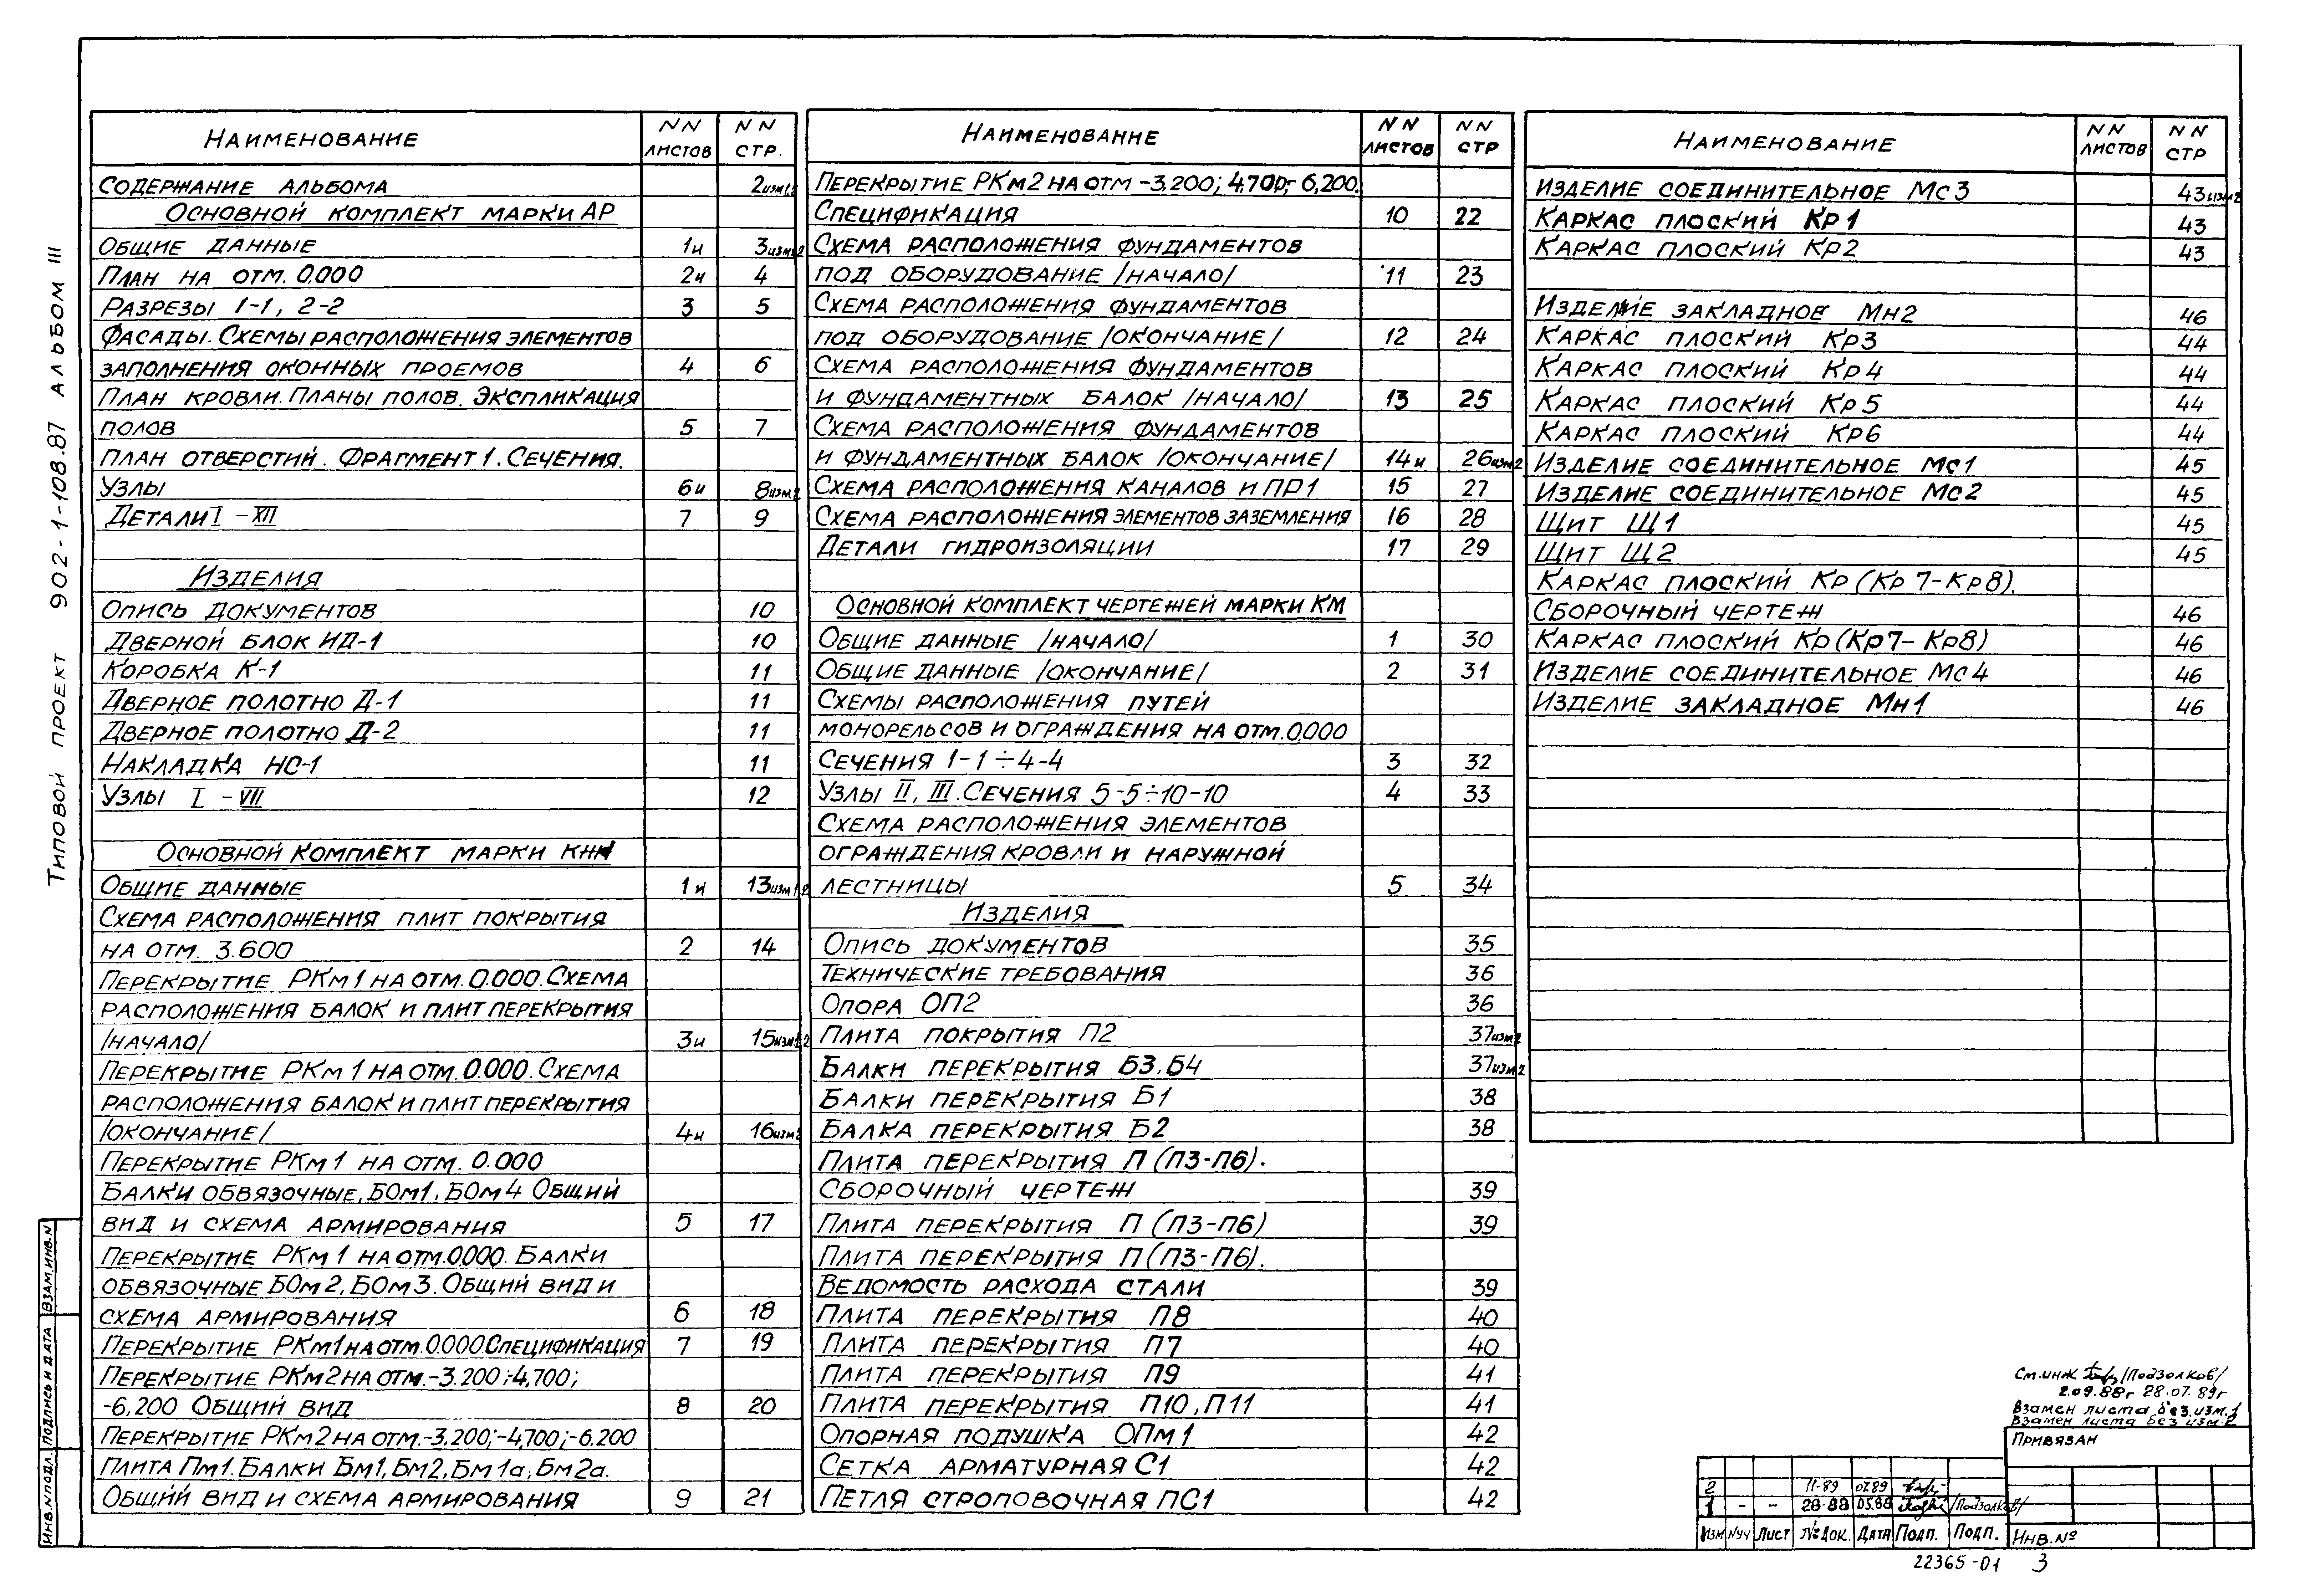 Типовой проект 902-1-108.87 Альбом III
Наименование NN листов NN стр.
Содержание альбома 2изм1,2
Основной комплект марки АР
Общие данные 1и 3изм2
План на отм. 0.000 2и 4
Разрезы 1-1, 2-2 3 5
Фасады. Схемы расположения элементов
заполнения оконных проемов 4 6
План кровли. Планы полов. Экспликация
полов 5 7
План отверстий. Фрагмент 1. Сечения.
Узлы 6и 8изм2
Детали I - XII 7 9
Изделия
Опись документов 10
Дверной блок ИД-1 10
Коробка К-1 11
Дверное полотно Д-1 11
Дверное полотно Д-2 11
Накладка НС-1 11
Узлы I - VII 12
Основной комплект марки КЖ
Общие данные 1и 13изм1,2
Схема расположения плит покрытия
на отм. 3.600 2 14
Перекрытие РКм1 на отм. 0.000. Схема
расположения балок и плит перекрытия
/начало/ 3и 15изм1,2
Перекрытие РКм1 на отм. 0.000. Схема
расположения балок и плит перекрытия
/окончание/ 4и 16изм2
Перекрытие РКм1 на отм. 0.000
Балки обвязочные, БОм1, БОм4 Общий
вид и схема армирования 5 17
Перекрытие РКм1 на отм. 0.000. Балки
обвязочные БОм2, БОм3. Общий вид и
схема армирования 6 18
Перекрытие РКм1 на отм. 0.000 Спецификация 7 19
Перекрытие РКм2 на отм. -3.200; -4,700;
-6,200 Общий вид 8 20
Перекрытие РКм2 на отм. -3,200; -4,700; -6,200
Плита Пм1. Балки Бм1, Бм2, Бм1а, Бм2а.
Общий вид и схема армирования 9 21
Наименование NN листов NN стр
Перекрытие РКм2 на отм -3,200; 4,700; - 6,200.
Спецификация 10 22
Схема расположения фундаментов
под оборудование /начало/ 11 23
Схема расположения фундаментов
под оборудование /окончание/ 12 24
Схема расположения фундаментов
и фундаментных балок /начало/ 13 25
Схема расположения фундаментов
и фундаментных балок /окончание/ 14и 26изм2
Схема расположения каналов и ПР1 15 27
Схема расположения элементов заземления 16 28
Детали гидроизоляции 17 29
Основной комплект чертежей марки КМ
Общие данные /начало/ 1 30
Общие данные /окончание/ 2 31
Схемы расположения путей
монорельсов и ограждения на отм. 0.000
Сечения 1-1÷4-4 3 32
Узлы II, III. Сечения 5-5÷10-10 4 33
Схема расположения элементов
ограждения кровли и наружной
лестницы 5 34
Изделия
Опись документов 35
Технические требования 36
Опора ОП2 36
Плита покрытия П2 37изм2
Балки перекрытия Б3, Б4 37изм2
Балки перекрытия Б1 38
Балка перекрытия Б2 38
Плита перекрытия П (П3-П6).
Сборочный чертеж 39
Плита перекрытия П (П3-П6) 39
Плита перекрытия П (П3-П6).
Ведомость расхода стали 39
Плита перекрытия П8 40
Плита перекрытия П7 40
Плита перекрытия П9 41
Плита перекрытия П10, П11 41
Опорная подушка ОПм1 42
Сетка арматурная С1 42
Петля строповочная ПС1 42
Наименование NN листов NN стр
Изделие соединительное Мс3 43изм2
Каркас плоский Кр1 43
Каркас плоский Кр2 43
Изделие закладное Мн2 46
Каркас плоский Кр3 44
Каркас плоский Кр4 44
Каркас плоский Кр5 44
Каркас плоский Кр6 44
Изделие соединительное Мс1 45
Изделие соединительное Мс2 45
Щит Щ1 45
Щит Щ2 45
Каркас плоский Кр (Кр7-Кр8).
Сборочный чертеж 46
Каркас плоский Кр (Кр7-Кр8) 46
Изделие соединительное Мс4 46
Изделие закладное Мн1 46
Взам. инв. N
Подпись и дата
Инв. N подл.
Ст. инж /Подзолков/
2.09.88г 28.07.89г
Взамен листа без изм. 1
Взамен листа без изм. 2
Привязан
2 11-89 07.89
1 - - 28-88 05.88 /Подзолков/
Изм Nуч Лист № док. Дата Подп. Подп.
Инв. №
22365-01 3